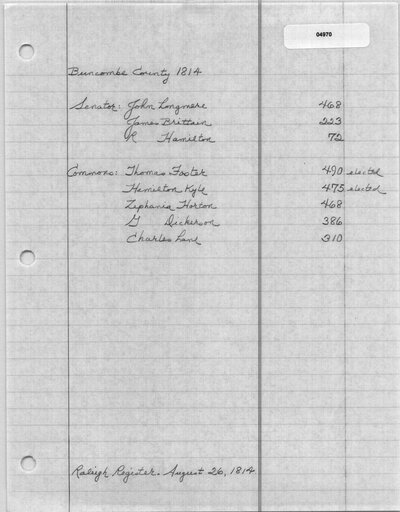 04970
Buncombe County 1814
Senator: John Longmere 468
James Brittain 223
R Hamilton 72
Commons: Thomas Foster 490 elected
Hamilton Kyle 475 elected
Zephania Horton 468
G Dickerson 386
Charles Lane 310
Raleigh Register. August 26, 1814